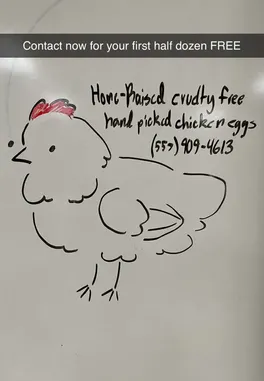 Contact now for your first half dozen FREE
Home-Raised cruelty free
hand picked chicken eggs
(557) 909-4613